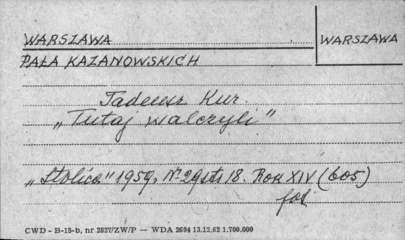 WARSZAWA
WARSZAWA
PAŁA KAZANOWSKICH
Tadeusz Kur.
„Tutaj walczyli"
„Stolica" 1959, Nr 29 str 18. Rok XIV (605)
fot.
CWD - B-15-b, nr 2827/ZW/P — WDA 2694 13.12.62 1.700.000